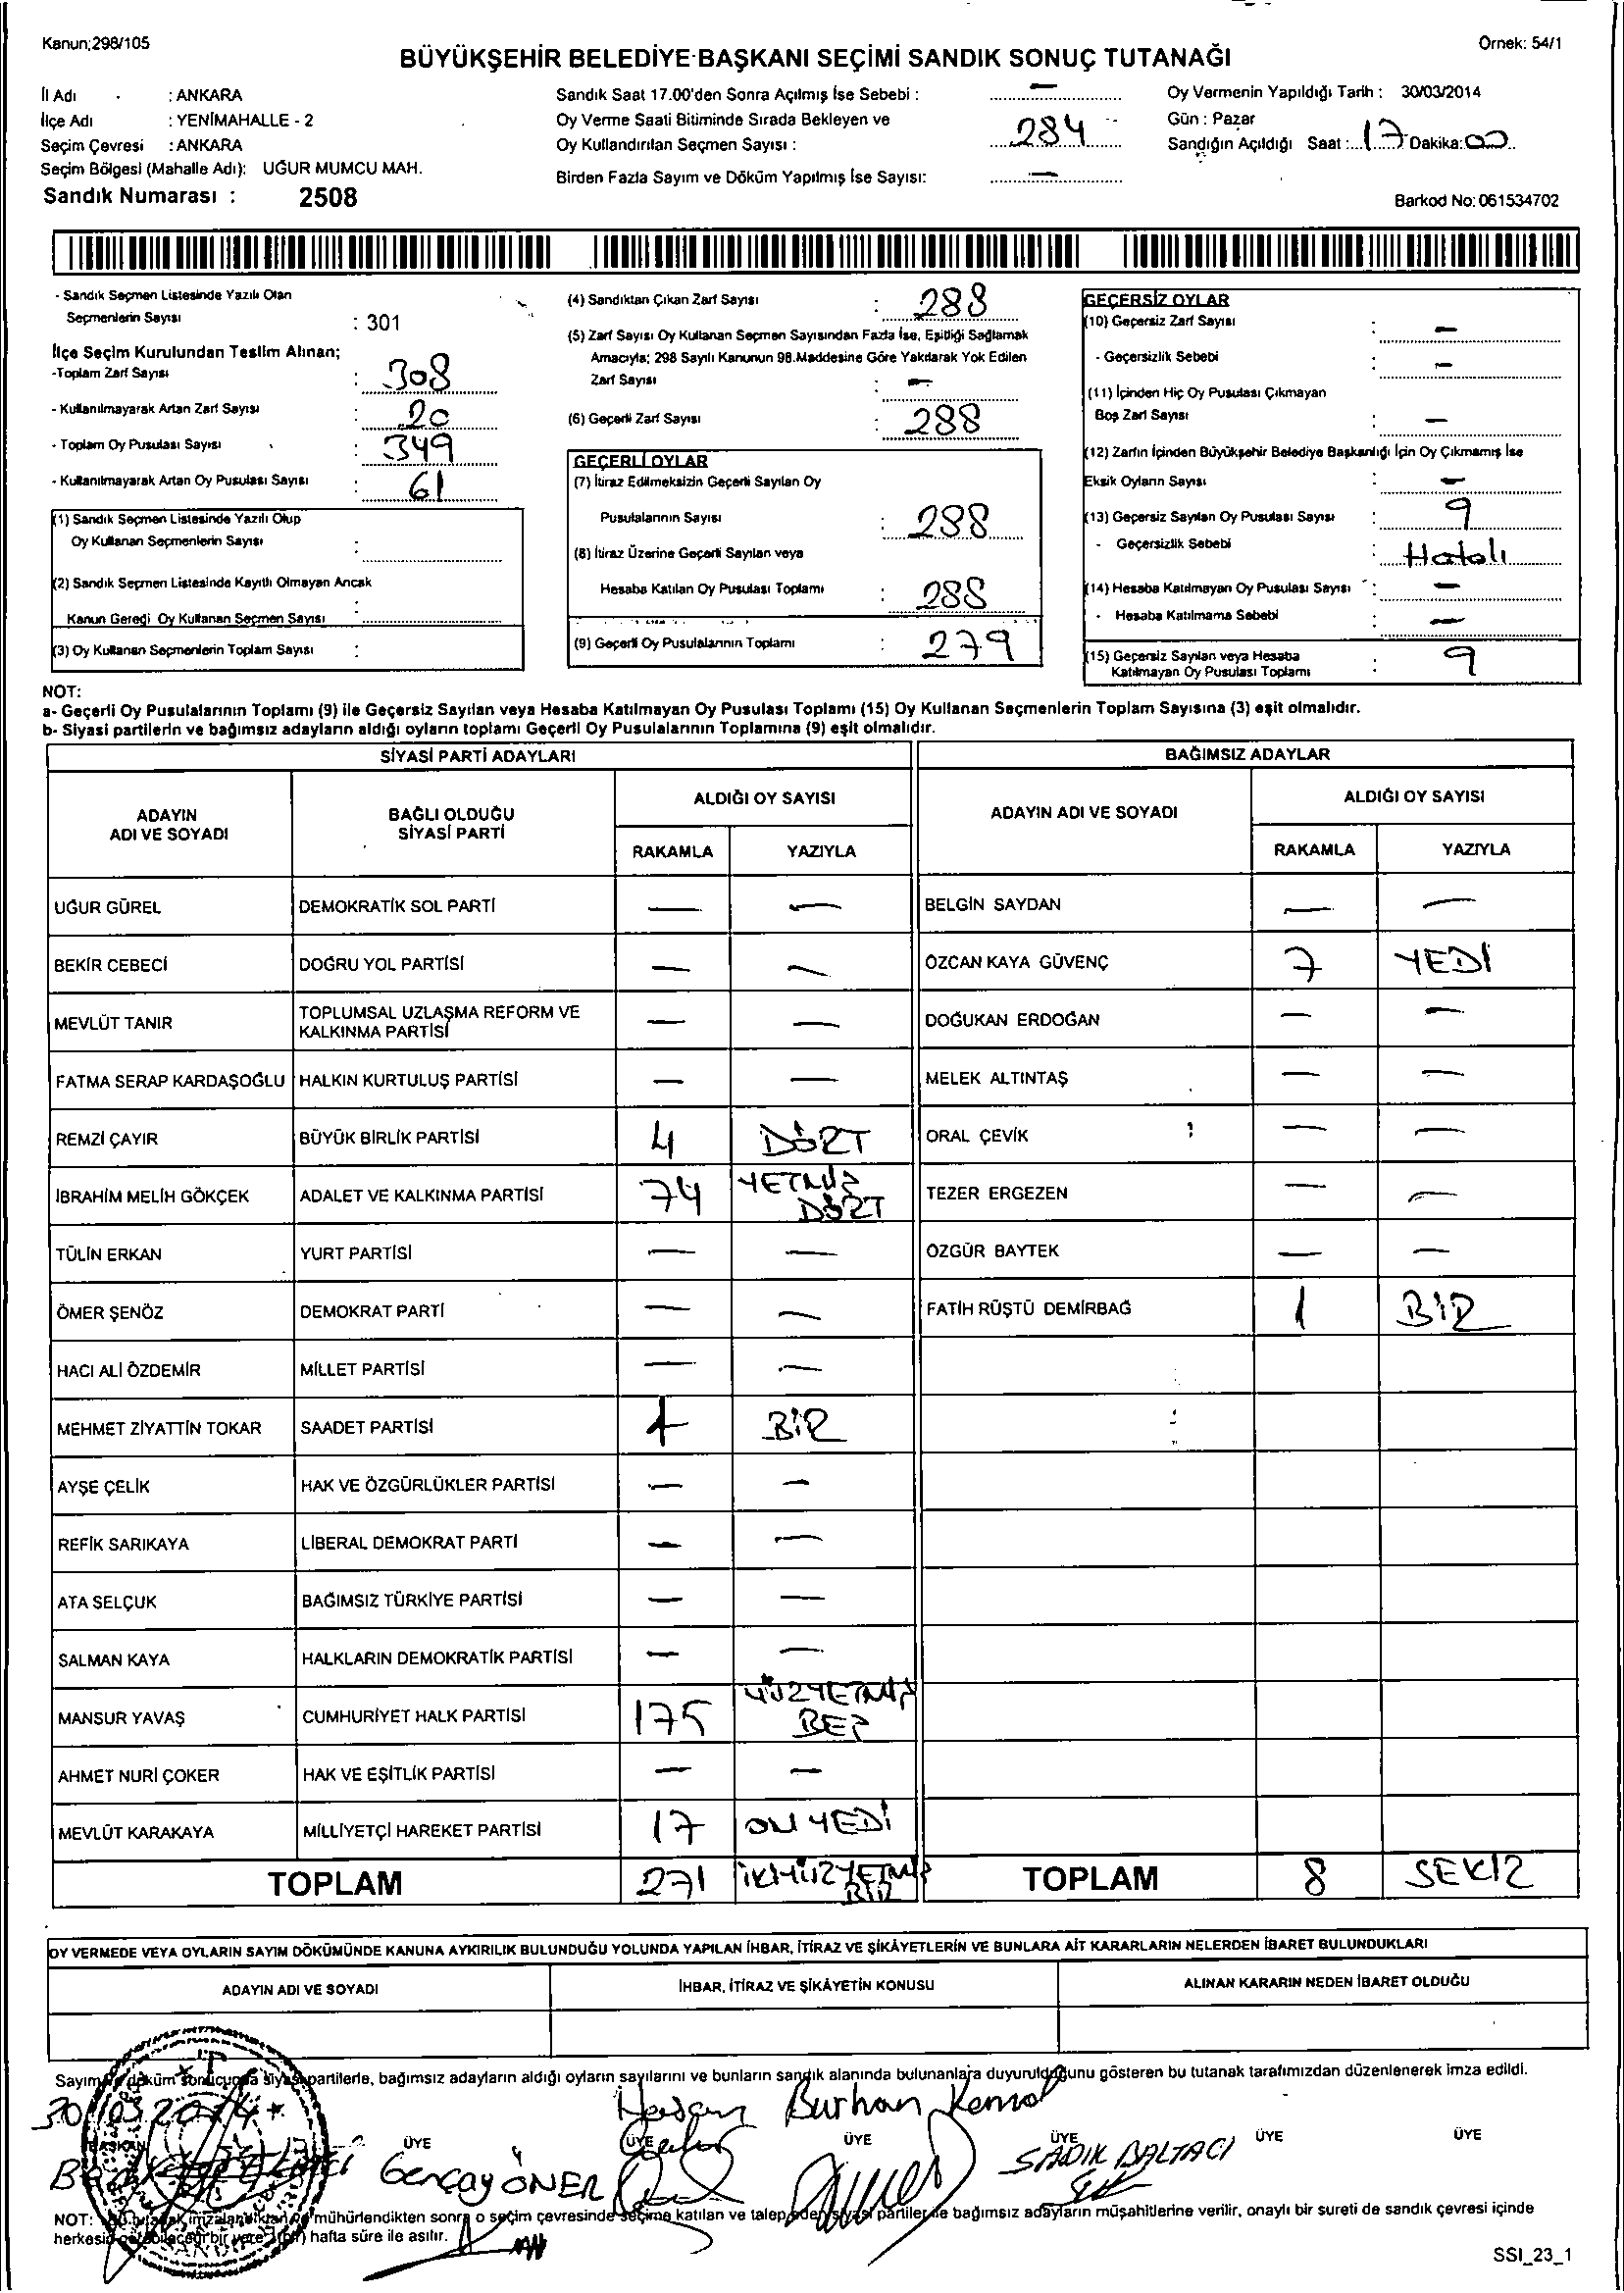 Kanun;298/105
Örnek: 54/1
BÜYÜKŞEHİR BELEDİYE BAŞKANI SEÇİMİ SANDIK SONUÇ TUTANAĞI
İl Adı : ANKARA
İlçe Adı : YENİMAHALLE - 2
Seçim Çevresi : ANKARA
Seçim Bölgesi (Mahalle Adı): UĞUR MUMCU MAH.
Sandık Numarası : 2508
Sandık Saat 17.00'den Sonra Açılmış İse Sebebi : —
Oy Verme Saati Bitiminde Sırada Bekleyen ve
Oy Kullandırılan Seçmen Sayısı : 284
Birden Fazla Sayım ve Döküm Yapılmış İse Sayısı: —
Oy Vermenin Yapıldığı Tarih : 30/03/2014
Gün : Pazar
Sandığın Açıldığı Saat : 17 Dakika: 00
Barkod No: 061534702
- Sandık Seçmen Listesinde Yazılı Olan
Seçmenlerin Sayısı : 301
İlçe Seçim Kurulundan Teslim Alınan;
-Toplam Zarf Sayısı : 308
- Kullanılmayarak Artan Zarf Sayısı : 20
- Toplam Oy Pusulası Sayısı : 349
- Kullanılmayarak Artan Oy Pusulası Sayısı : 61
(1) Sandık Seçmen Listesinde Yazılı Olup
Oy Kullanan Seçmenlerin Sayısı :
(2) Sandık Seçmen Listesinde Kayıtlı Olmayan Ancak
Kanun Gereği Oy Kullanan Seçmen Sayısı :
(3) Oy Kullanan Seçmenlerin Toplam Sayısı :
(4) Sandıktan Çıkan Zarf Sayısı : 288
(5) Zarf Sayısı Oy Kullanan Seçmen Sayısından Fazla İse, Eşitliği Sağlamak
Amacıyla; 298 Sayılı Kanunun 98.Maddesine Göre Yakılarak Yok Edilen
Zarf Sayısı : —
(6) Geçerli Zarf Sayısı : 288
GEÇERLİ OYLAR
(7) İtiraz Edilmeksizin Geçerli Sayılan Oy
Pusulalarının Sayısı : 288
(8) İtiraz Üzerine Geçerli Sayılan veya
Hesaba Katılan Oy Pusulası Toplamı : 288
(9) Geçerli Oy Pusulalarının Toplamı : 279
GEÇERSİZ OYLAR
(10) Geçersiz Zarf Sayısı : —
- Geçersizlik Sebebi : —
(11) İçinden Hiç Oy Pusulası Çıkmayan
Boş Zarf Sayısı : —
(12) Zarfın İçinden Büyükşehir Belediye Başkanlığı İçin Oy Çıkmamış İse
Eksik Oyların Sayısı : —
(13) Geçersiz Sayılan Oy Pusulası Sayısı : 9
- Geçersizlik Sebebi : Hatalı
(14) Hesaba Katılmayan Oy Pusulası Sayısı : —
- Hesaba Katılmama Sebebi : —
(15) Geçersiz Sayılan veya Hesaba
Katılmayan Oy Pusulası Toplamı : 9
NOT:
a- Geçerli Oy Pusulalarının Toplamı (9) ile Geçersiz Sayılan veya Hesaba Katılmayan Oy Pusulası Toplamı (15) Oy Kullanan Seçmenlerin Toplam Sayısına (3) eşit olmalıdır.
b- Siyasi partilerin ve bağımsız adayların aldığı oyların toplamı Geçerli Oy Pusulalarının Toplamına (9) eşit olmalıdır.
SİYASİ PARTİ ADAYLARI
ADAYIN ADI VE SOYADI BAĞLI OLDUĞU SİYASİ PARTİ ALDIĞI OY SAYISI
RAKAMLA YAZIYLA
UĞUR GÜREL DEMOKRATİK SOL PARTİ — —
BEKİR CEBECİ DOĞRU YOL PARTİSİ — —
MEVLÜT TANIR TOPLUMSAL UZLAŞMA REFORM VE KALKINMA PARTİSİ — —
FATMA SERAP KARDAŞOĞLU HALKIN KURTULUŞ PARTİSİ — —
REMZİ ÇAYIR BÜYÜK BİRLİK PARTİSİ 4 DÖRT
İBRAHİM MELİH GÖKÇEK ADALET VE KALKINMA PARTİSİ 74 YETMİŞ DÖRT
TÜLİN ERKAN YURT PARTİSİ — —
ÖMER ŞENÖZ DEMOKRAT PARTİ — —
HACI ALİ ÖZDEMİR MİLLET PARTİSİ — —
MEHMET ZİYATTİN TOKAR SAADET PARTİSİ 1 BİR
AYŞE ÇELİK HAK VE ÖZGÜRLÜKLER PARTİSİ — —
REFİK SARIKAYA LİBERAL DEMOKRAT PARTİ — —
ATA SELÇUK BAĞIMSIZ TÜRKİYE PARTİSİ — —
SALMAN KAYA HALKLARIN DEMOKRATİK PARTİSİ — —
MANSUR YAVAŞ CUMHURİYET HALK PARTİSİ 175 YÜZYETMİŞ BEŞ
AHMET NURİ ÇOKER HAK VE EŞİTLİK PARTİSİ — —
MEVLÜT KARAKAYA MİLLİYETÇİ HAREKET PARTİSİ 17 ON YEDİ
TOPLAM 271 İKİYÜZYETMİŞ BİR
BAĞIMSIZ ADAYLAR
ADAYIN ADI VE SOYADI ALDIĞI OY SAYISI
RAKAMLA YAZIYLA
BELGİN SAYDAN — —
ÖZCAN KAYA GÜVENÇ 7 YEDİ
DOĞUKAN ERDOĞAN — —
MELEK ALTINTAŞ — —
ORAL ÇEVİK — —
TEZER ERGEZEN — —
ÖZGÜR BAYTEK — —
FATİH RÜŞTÜ DEMİRBAĞ 1 BİR
TOPLAM 8 SEKİZ
OY VERMEDE VEYA OYLARIN SAYIM DÖKÜMÜNDE KANUNA AYKIRILIK BULUNDUĞU YOLUNDA YAPILAN İHBAR, İTİRAZ VE ŞİKÂYETLERİN VE BUNLARA AİT KARARLARIN NELERDEN İBARET BULUNDUKLARI
ADAYIN ADI VE SOYADI İHBAR, İTİRAZ VE ŞİKÂYETİN KONUSU ALINAN KARARIN NEDEN İBARET OLDUĞU
Sayım ve döküm sonucunda siyasi partilerle, bağımsız adayların aldığı oyların sayılarını ve bunların sandık alanında bulunanlara duyurulduğunu gösteren bu tutanak tarafımızdan düzenlenerek imza edildi.
30/03/2014
Hasan Burhan Kemal
BAŞKAN ÜYE ÜYE ÜYE ÜYE ÜYE ÜYE
Gençay ÖNER SADIK BALTACI
NOT: Bu tutanak imzalandıktan ve mühürlendikten sonra o seçim çevresinde seçime katılan ve talep eden siyasi partiler ile bağımsız adayların müşahitlerine verilir, onaylı bir sureti de sandık çevresi içinde
herkesin görebileceği bir yere 1 (bir) hafta süre ile asılır.
SSI_23_1